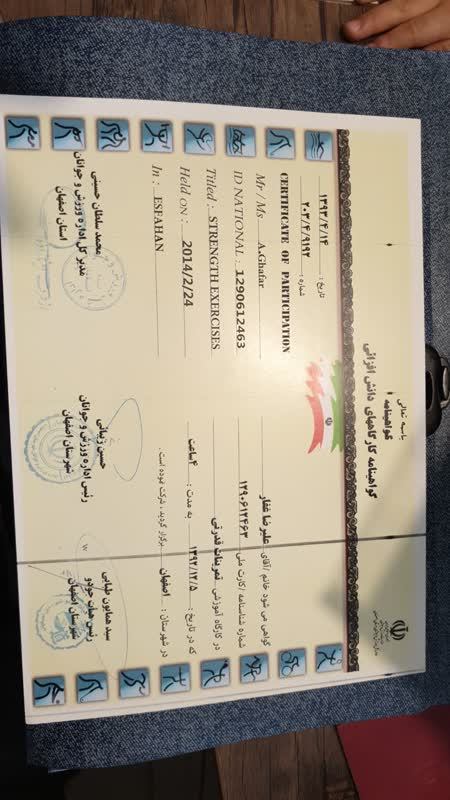 باسمه تعالی
گواهینامه
گواهینامه کارگاههای دانش افزائی
تاریخ: ۱۳۹۳/۴/۱۴
شماره: ۲۰۳/۴/۹۱۹۲
CERTIFICATE OF PARTICIPATION
Mr / Ms A.Ghafar
ID NATIONAL : 1290612463
Titled : STRENGTH EXERCISES
Held ON : 2014/2/24
In : ESFAHAN
گواهی می شود خانم / آقای علیرضا غفار
شماره شناسنامه / کارت ملی ۱۲۹۰۶۱۲۴۶۳
در کارگاه آموزشی تمرینات قدرتی
که در تاریخ: ۱۳۹۲/۱۲/۵ به مدت: ۴ساعت
در شهرستان: اصفهان برگزار گردید، شرکت نموده است.
سید همایون طبایی
رئیس هیات جودو
شهرستان اصفهان
حسین زیبایی
رئیس اداره ورزش و جوانان
شهرستان اصفهان
محمد سلطان حسینی
مدیر کل اداره ورزش و جوانان
استان اصفهان